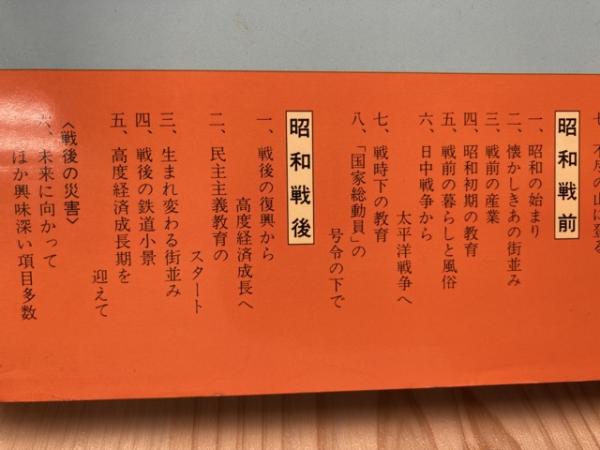 昭和戦前
一、昭和の始まり
二、懐かしきあの街並み
三、戦前の産業
四、昭和初期の教育
五、戦前の暮らしと風俗
六、日中戦争から
太平洋戦争へ
七、戦時下の教育
八、「国家総動員」の
号令の下で
昭和戦後
一、戦後の復興から
高度経済成長へ
二、民主主義教育の
スタート
三、生まれ変わる街並み
四、戦後の鉄道小景
五、高度経済成長期を
迎えて
〈戦後の災害〉
六、未来に向かって
ほか興味深い項目多数